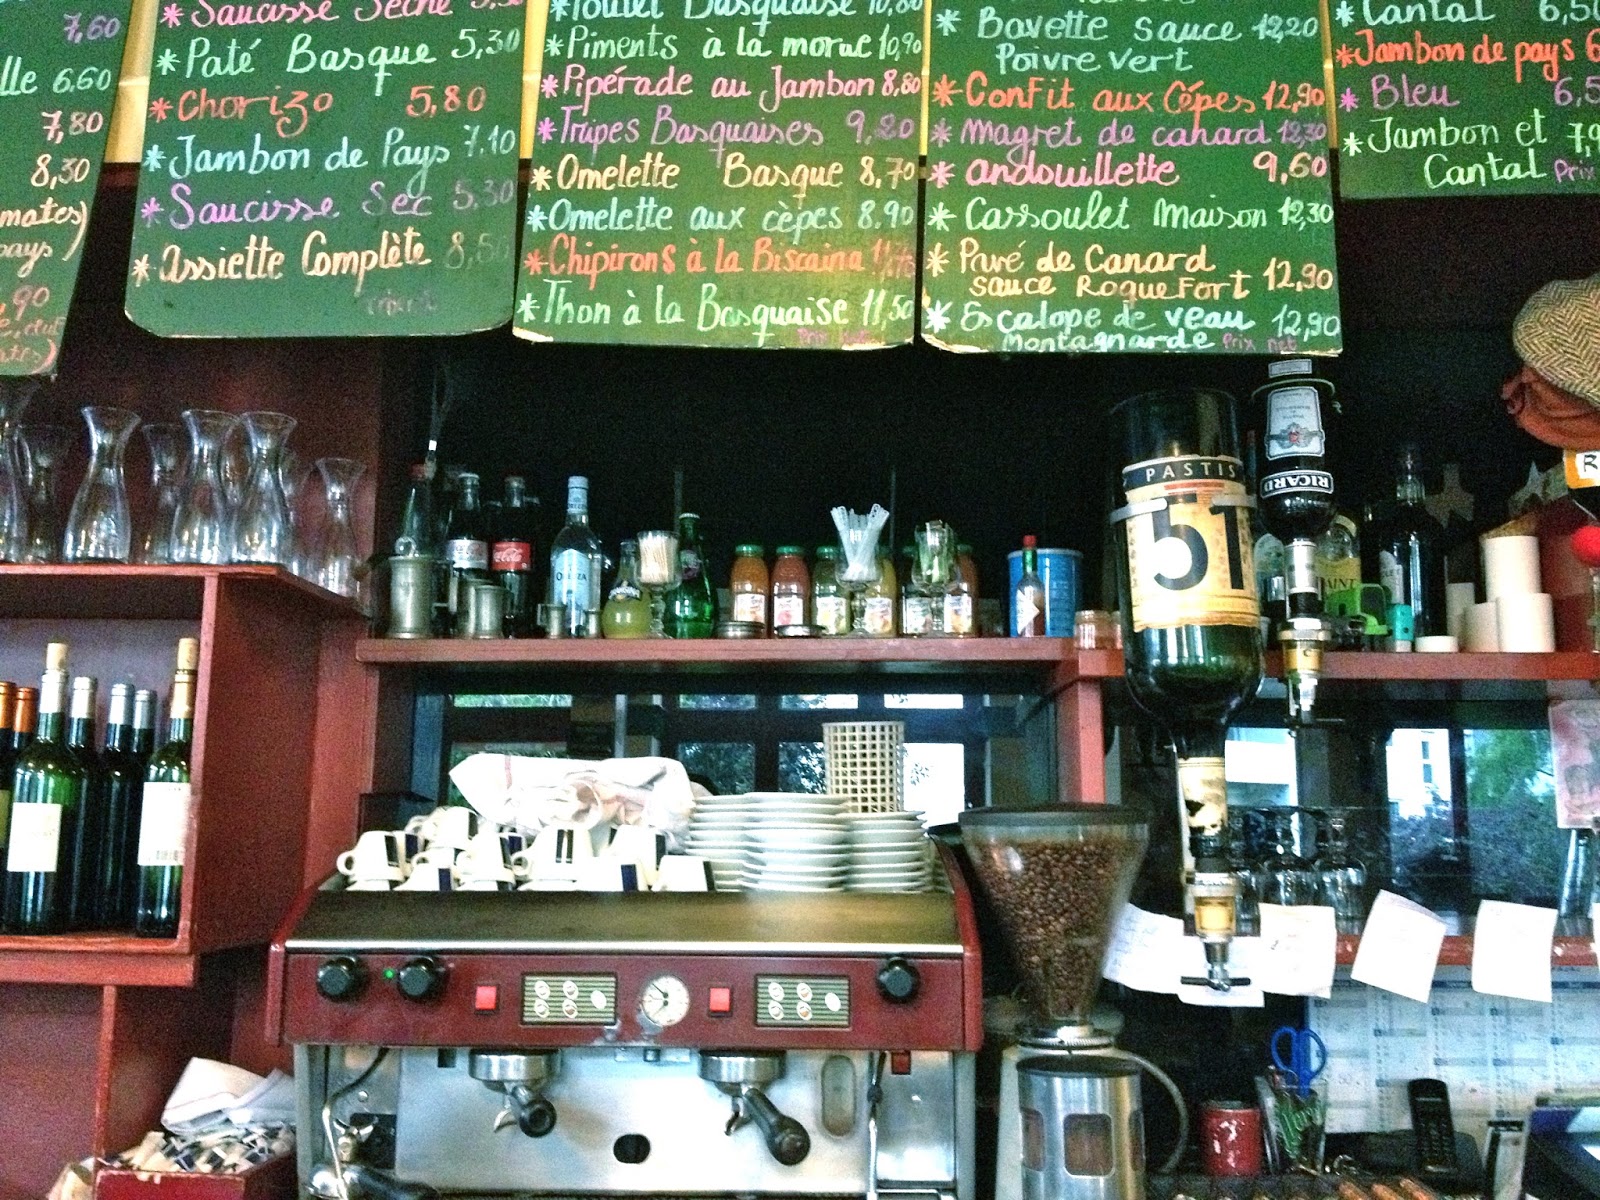 7,60
lle 6,60
7,80
8,30
mates)
pays)
,90
Saucisse Sèche 5,30
* Paté Basque 5,30
* Chorizo 5,80
* Jambon de Pays 7,10
* Saucisse Sec 5,30
* Assiette Complète 8,50
* Poulet Basquaise 10,80
* Piments à la morue 10,90
* Pipérade au Jambon 8,80
* Tripes Basquaises 9,20
* Omelette Basque 8,70
* Omelette aux cèpes 8,90
* Chipirons à la Biscaina
* Thon à la Basquaise 11,50
Prix net
* Bavette Sauce 12,20
Poivre Vert
* Confit aux Cépes 12,90
* Magret de canard 12,30
* andouillette 9,60
* Cassoulet Maison 12,30
* Pavé de Canard
Sauce Roquefort 12,90
* Escalope de veau 12,90
Montagnarde Prix net
* Cantal 6,50
* Jambon de pays 6
* Bleu 6,5
* Jambon et 7,9
Cantal Prix
PASTIS
51
RICARD
Coca-Cola